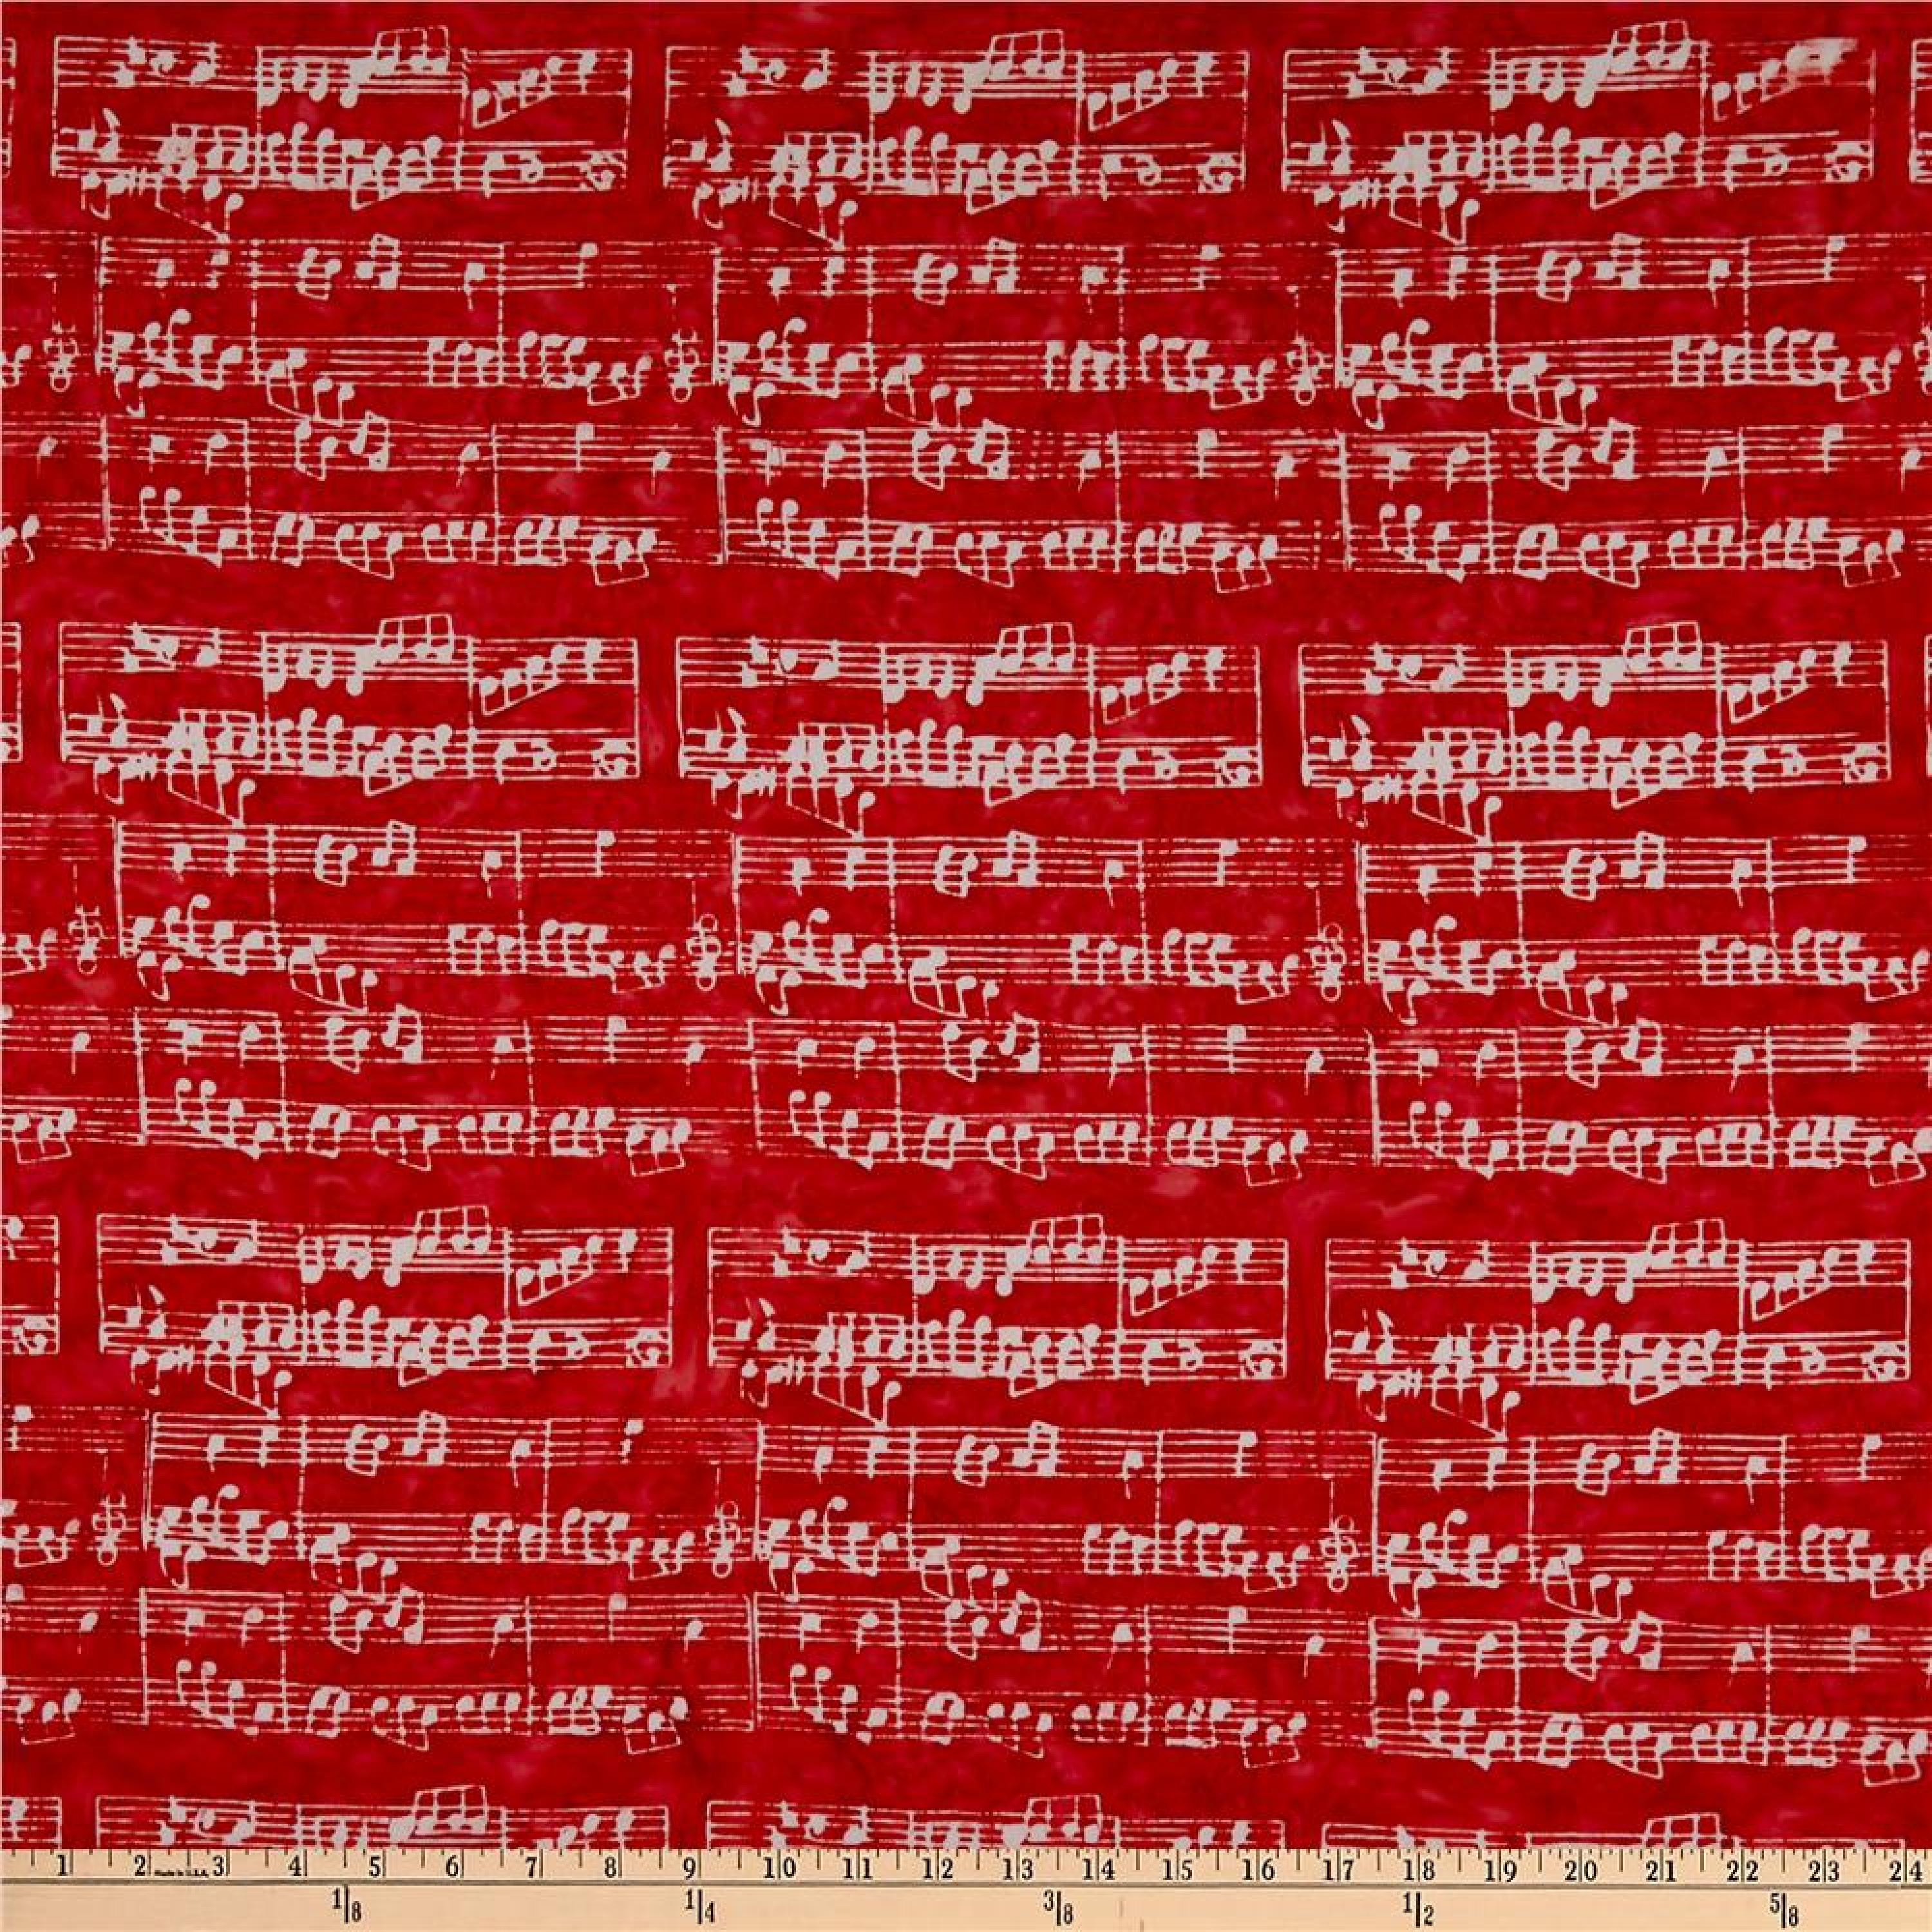 1 2 Made in U.S.A. 3 4 5 6 7 8 9 10 11 12 13 14 15 16 17 18 19 20 21 22 23 24
1/8 1/4 3/8 1/2 5/8